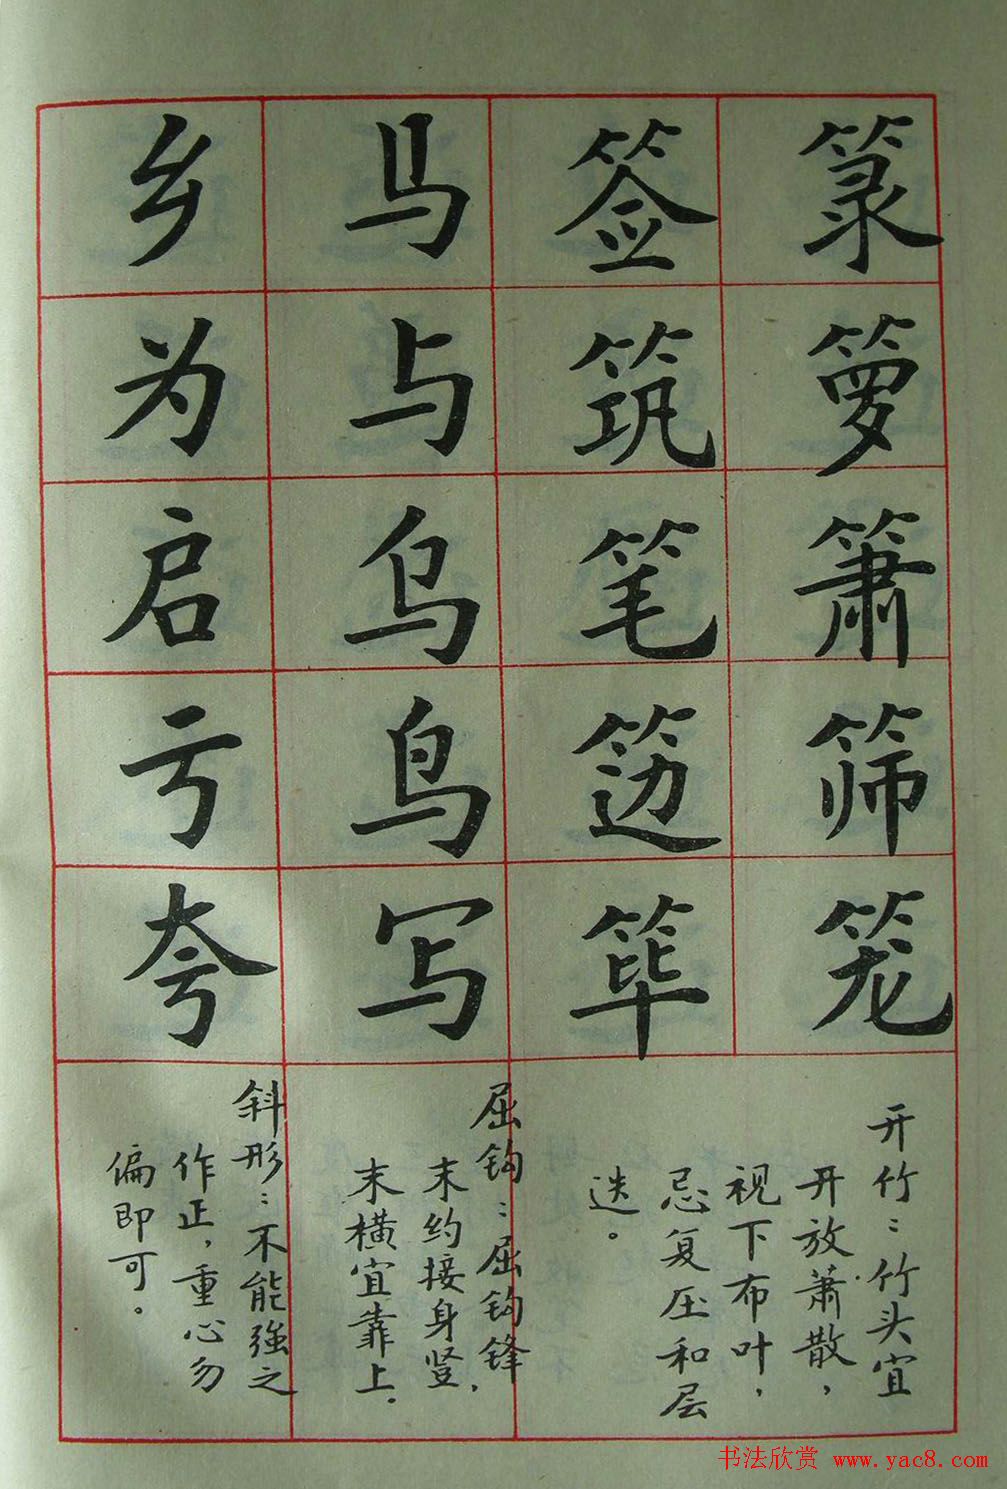 篆箩箫筛笼
签筑笔笾筚
马与乌鸟写
乡为启亏夸
开竹：竹头宜
开放萧散，
视下布叶，
忌复压和层
迭。
屈钩：屈钩锋，
末约接身竖，
末横宜靠上。
斜形：不能強之
作正，重心勿
偏即可。
书法欣赏 www.yac8.com